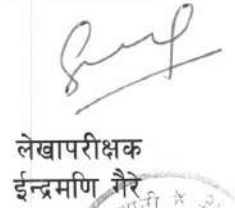 लेखापरीक्षक
ईन्द्रमणि गैरे